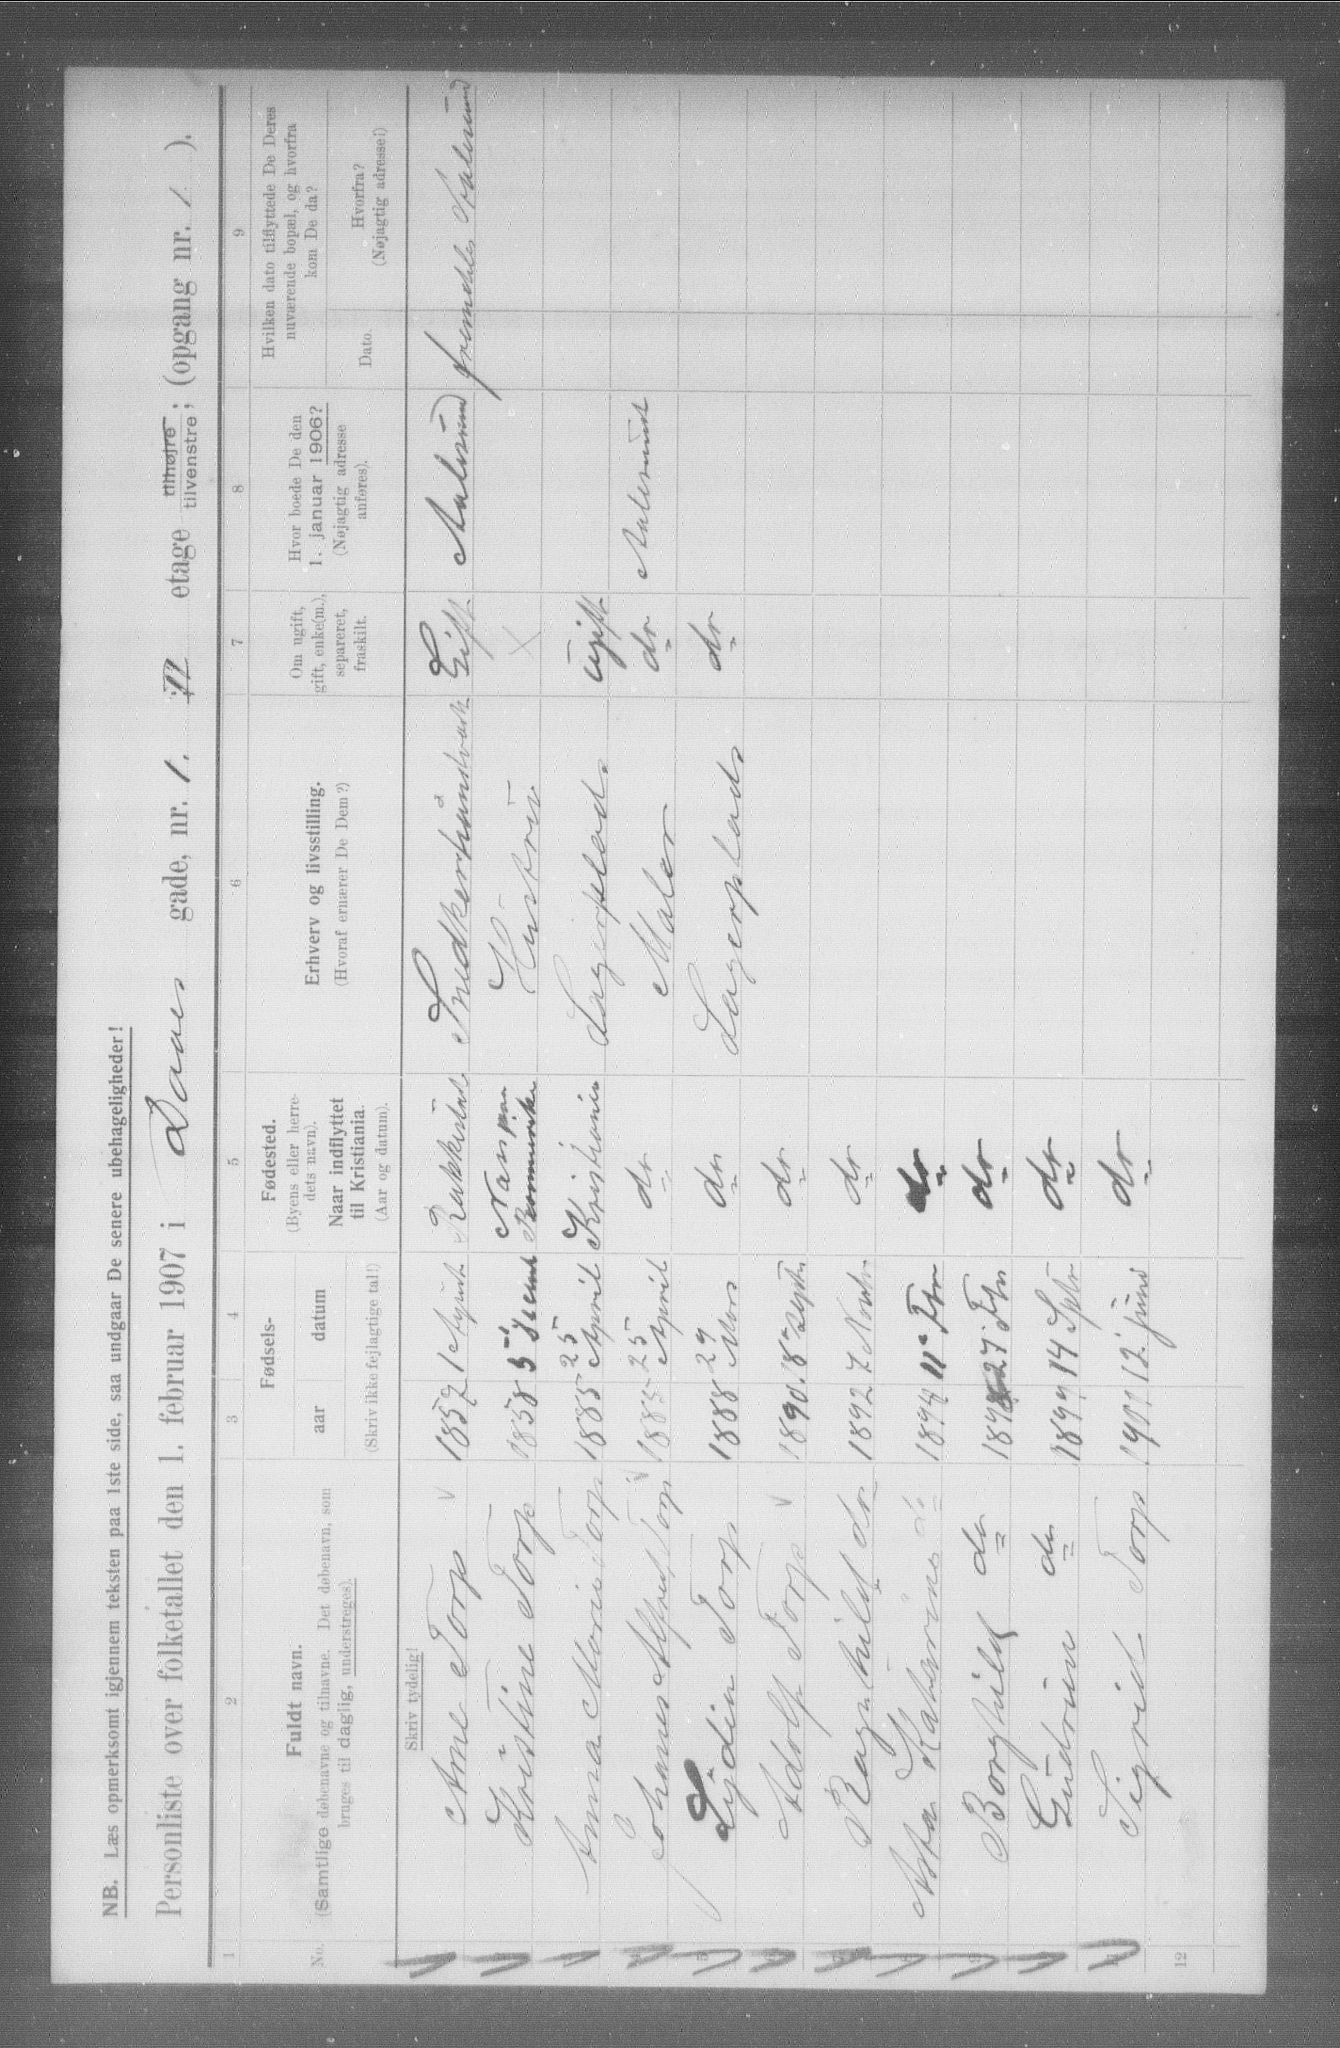 NB. Læs opmerksomt igjennem teksten paa 1ste side, saa undgaar De senere ubehageligheder!
Personliste over folketallet den 1. februar 1907 i Daaes gade, nr. 1. II etage tilhøjre tilvenstre; (opgang nr. 1 ).
1 2 3 4 5 6 7 8 9
No. Fuldt navn. (Samtlige døbenavne og tilnavne. Det døbenavn, som bruges til daglig, understreges).
Fødsels- aar datum (Skriv ikke fejlagtige tal!)
Fødested. (Byens eller herredets navn). Naar indflyttet til Kristiania. (Aar og datum).
Erhverv og livsstilling. (Hvoraf ernærer De Dem?)
Om ugift, gift, enke(m.), separeret, fraskilt.
Hvor boede De den 1. januar 1906? (Nøjagtig adresse anføres).
Hvilken dato tilflyttede De Deres nuværende bopæl, og hvorfra kom De da?
Dato. Hvorfra? (Nøjagtig adresse!)
Skriv tydelig!
Arne Torp 1857 1 August Rakkestad Snedkerhåndværk Gift Aalesund fremdeles Aalesund
Kristine Torp 1858 5 Nan paa Romerike Hustru X
Anna Marie Torp 1885 25 April Kristiania Lagerplads Ugift
Johannes Alfred Torp 1885 25 April do Maler do Aalesund
Lydia Torp 1888 29 Mars do Lagerplads do
Adolf Torp 1890 18 Septr do
Ragnhild do 1892 7 Novbr do
Asta Katerine do 11 Fbr do
Borghild do 27 Fbr do
Gudrun do 14 Sptr do
Sigrid Torp 1901 12 juni do
12